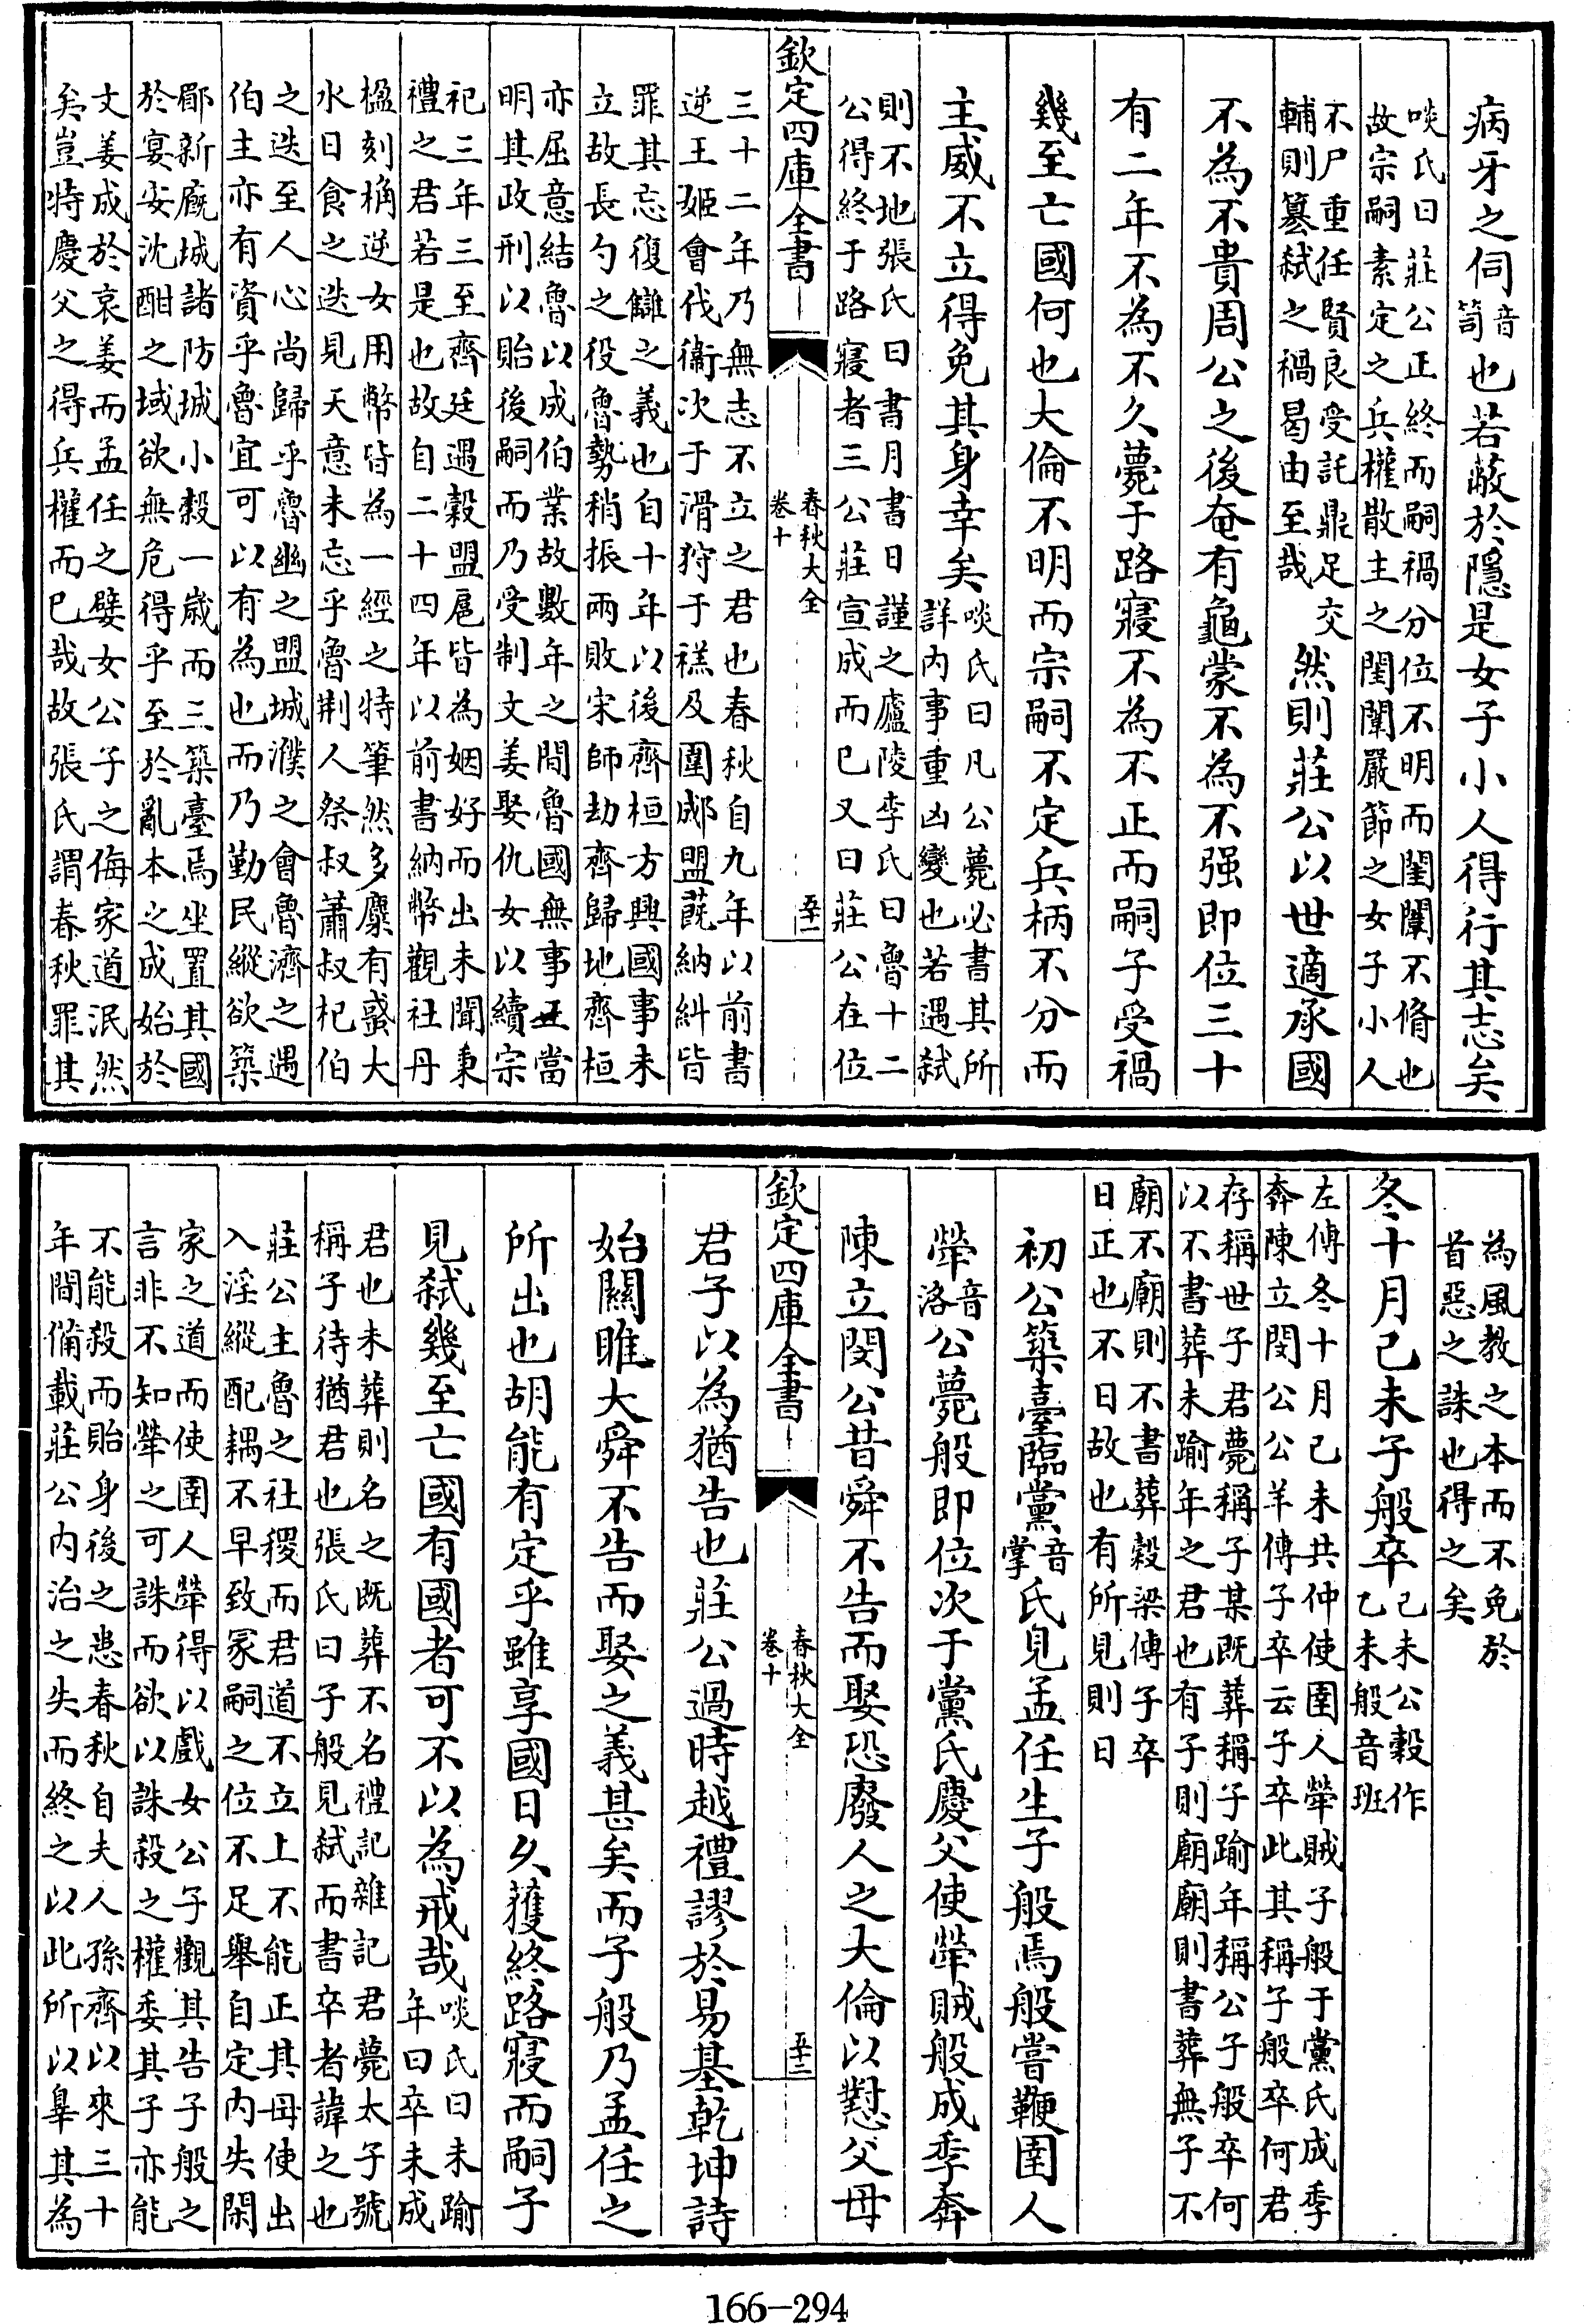 病牙之伺音笥也若蔽於隱是女子小人得行其志矣
啖氏曰莊公正終而嗣禍分位不明而閨闈不脩也
故宗嗣素定之兵權散主之閨闈嚴節之女子小人
不尸重任賢良受託鼎足交
輔則簒弑之禍曷由至哉
然則莊公以世適承國
不為不貴周公之後奄有龜蒙不為不强即位三十
有二年不為不久薨于路寢不為不正而嗣子受禍
幾至亡國何也大倫不明而宗嗣不定兵柄不分而
主威不立得免其身幸矣
啖氏曰凡公薨必書其所
詳内事重凶變也若遇弑
則不地張氏曰書月書日謹之廬陵李氏曰魯十二
公得終于路寢者三公莊宣成而已又曰莊公在位
欽定四庫全書
春秋大全
卷十
五十一
三十二年乃無志不立之君也春秋自九年以前書
逆王姬會伐衞次于滑狩于禚及圍郕盟蔇納糾皆
罪其忘復讎之義也自十年以後齊桓方興國事未
立故長勺之役魯勢稍振兩敗宋師劫齊歸地齊桓
亦屈意結魯以成伯業故數年之間魯國無事正當
明其政刑以貽後嗣而乃受制文姜娶仇女以續宗
祀三年三至齊廷遇穀盟扈皆為姻好而出未聞秉
禮之君若是也故自二十四年以前書納幣觀社丹
楹刻桷逆女用幣皆為一經之特筆然多麋有蜮大
水日食之迭見天意未忘乎魯荆人祭叔蕭叔杞伯
之迭至人心尚歸乎魯幽之盟城濮之會魯濟之遇
伯主亦有資乎魯宜可以有為也而乃勤民縱欲築
郿新厩城諸防城小穀一歳而三築臺焉坐置其國
於宴安沈酣之域欲無危得乎至於亂本之成始於
文姜成於哀姜而孟任之嬖女公子之侮家道泯然
矣豈特慶父之得兵權而已哉故張氏謂春秋罪其
為風教之本而不免於
首惡之誅也得之矣
冬十月己未子般卒
己未公穀作
乙未般音班
左傳冬十月己未共仲使圉人犖賊子般于黨氏成季
奔陳立閔公公羊傳子卒云子卒此其稱子般卒何君
存稱世子君薨稱子某既葬稱子踰年稱公子般卒何
以不書葬未踰年之君也有子則廟廟則書葬無子不
廟不廟則不書葬穀梁傳子卒
日正也不日故也有所見則日
初公築臺臨黨音掌氏見孟任生子般焉般嘗鞭圉人
犖音洛公薨般即位次于黨氏慶父使犖賊般成季奔
陳立閔公昔舜不告而娶恐廢人之大倫以懟父母
欽定四庫全書
春秋大全
卷十
五十二
君子以為猶告也莊公過時越禮謬於易基乾坤詩
始關雎大舜不告而娶之義甚矣而子般乃孟任之
所出也胡能有定乎雖享國日久獲終路寢而嗣子
見弑幾至亡國有國者可不以為戒哉
啖氏曰未踰
年曰卒未成
君也未葬則名之既葬不名禮記雜記君薨太子號
稱子待猶君也張氏曰子般見弑而書卒者諱之也
莊公主魯之社稷而君道不立上不能正其母使出
入淫縱配耦不早致冢嗣之位不足舉自定内失閑
家之道而使圉人犖得以戲女公子觀其告子般之
言非不知犖之可誅而欲以誅殺之權委其子亦能
不能殺而貽身後之患春秋自夫人孫齊以來三十
年間備載莊公内治之失而終之以此所以辠其為
166-294